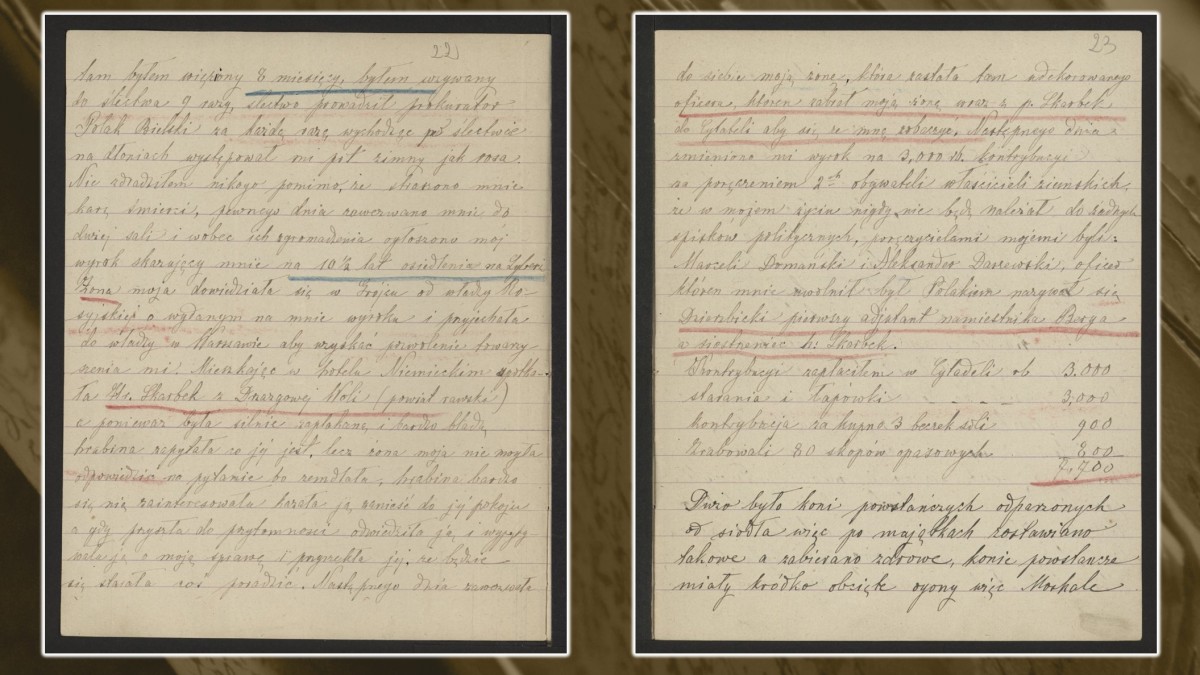 22
tam byłem więziony 8 miesięcy, byłem wzywany
do śledztwa 9 razy, śledztwo prowadził prokurator
Polak Bielski za każdą razą wychodząc po śledztwie
na dłoniach występował mi pot zimny jak rosa.
Nie zdradziłem nikogo pomimo, że straszono mnie
karą śmierci, pewnego dnia zawezwano mnie do
dużej sali i wobec ich zgromadzenia ogłoszono mój
wyrok skazujący mnie na 10½ lat osiedlenia na Syberii
Żona moja dowiedziała się w Grójcu od władzy Ro-
syjskiej o wydanym na mnie wyroku i przyjechała
do władzy w Warszawie aby uzyskać pozwolenie towarzy
szenia mi. Mieszkając w hotelu Niemieckim spotka-
ła Hr. Skarbek z Drzazgowej Woli (powiat rawski)
a ponieważ była silnie zapłakaną i bardzo bladą
hrabina zapytała co jéj jest, lecz żona moja nie mogła
odpowiedzieć na pytanie bo zemdlała, hrabina bardzo
się nią zainteresowała kazała ją zanieść do jéj pokoju
a gdy przyszła do przytomności odwiedziła ją i wypyty
wała ją o moją sprawę i przyrzekła jéj, że będzie
się starała coś poradzić. Następnego dnia zawezwała
23
do siebie moją żonę, która zastała tam udekorowanego
oficera, któren zabrał moją żonę wraz z p. Skarbek
do Cytadeli aby się ze mną zobaczyć. Następnego dnia
zmieniono mi wyrok na 3,000 rb. kontrybucyi
za poręczeniem 2ch obywateli właścicieli ziemskich,
że w mojem życiu nigdy nie będę należał do żadnych
spisków politycznych, poręczycielami mojemi byli:
Marceli Domański i Aleksander Daszewski, oficer
któren mnie zwolnił był Polakiem nazywał się
Dzierzbicki pierwszy adjutant namiestnika Berga
a siostrzeniec h: Skarbek.
Kontrybucyi zapłaciłem w Cytadeli rb 3.000
starania i łapówki - - - - 3,000
kontrybucja za kupno 3 beczek soli 900
Zrabowali 80 skopów opasowych 800
7,700
Dużo było koni powstańczych odparzonych
od siodła więc po majątkach zostawiano
takowe a zabierano zdrowe, konie powstańcze
miały krótko obcięte ogony więc Moskale